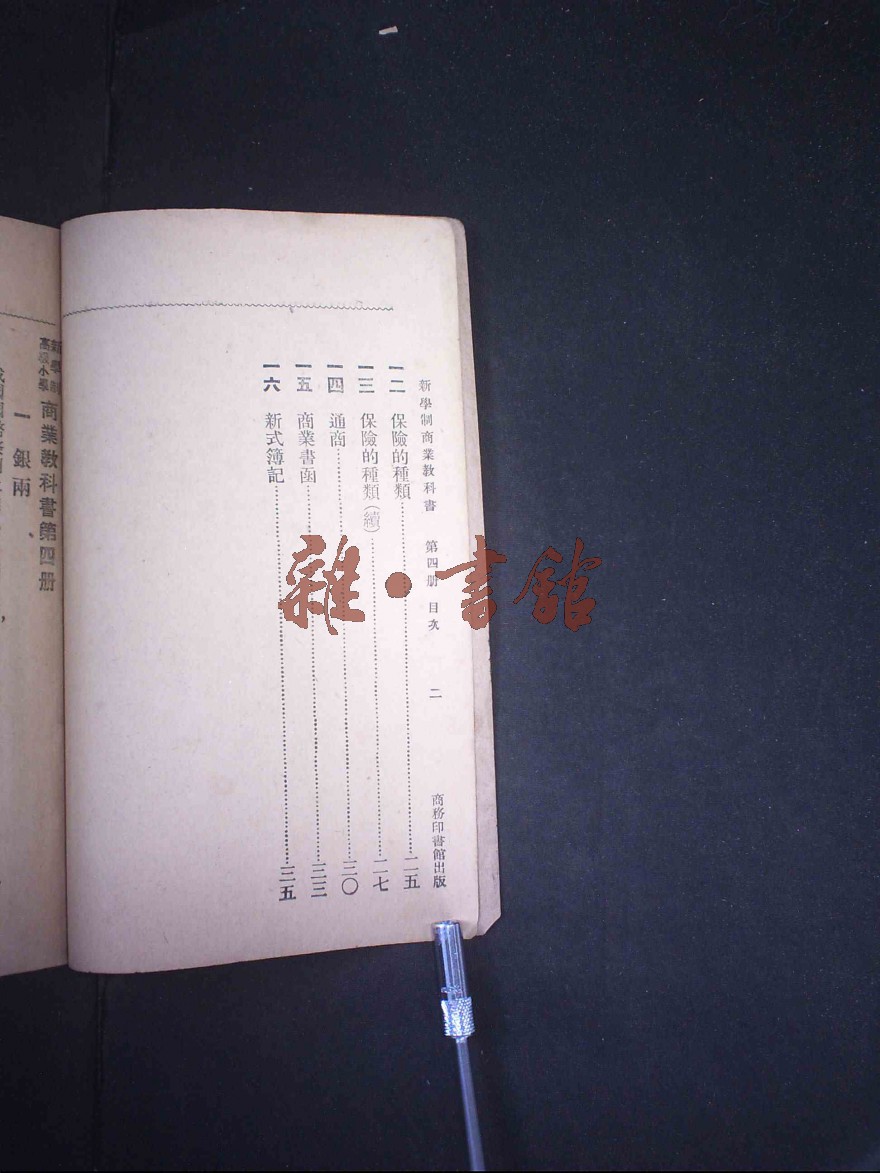 新學制商業教科書 第四册 目次 二 商務印書館出版
一二 保險的種類……二五
一三 保險的種類(續)……二七
一四 通商……三〇
一五 商業書函……三三
一六 新式簿記……三五
新學制高級小學商業教科書第四册
一 銀兩
雜·書館